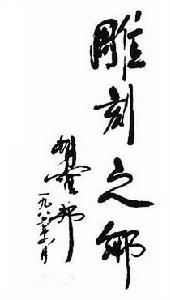 雕刻之鄉
胡耀邦
一九八年月